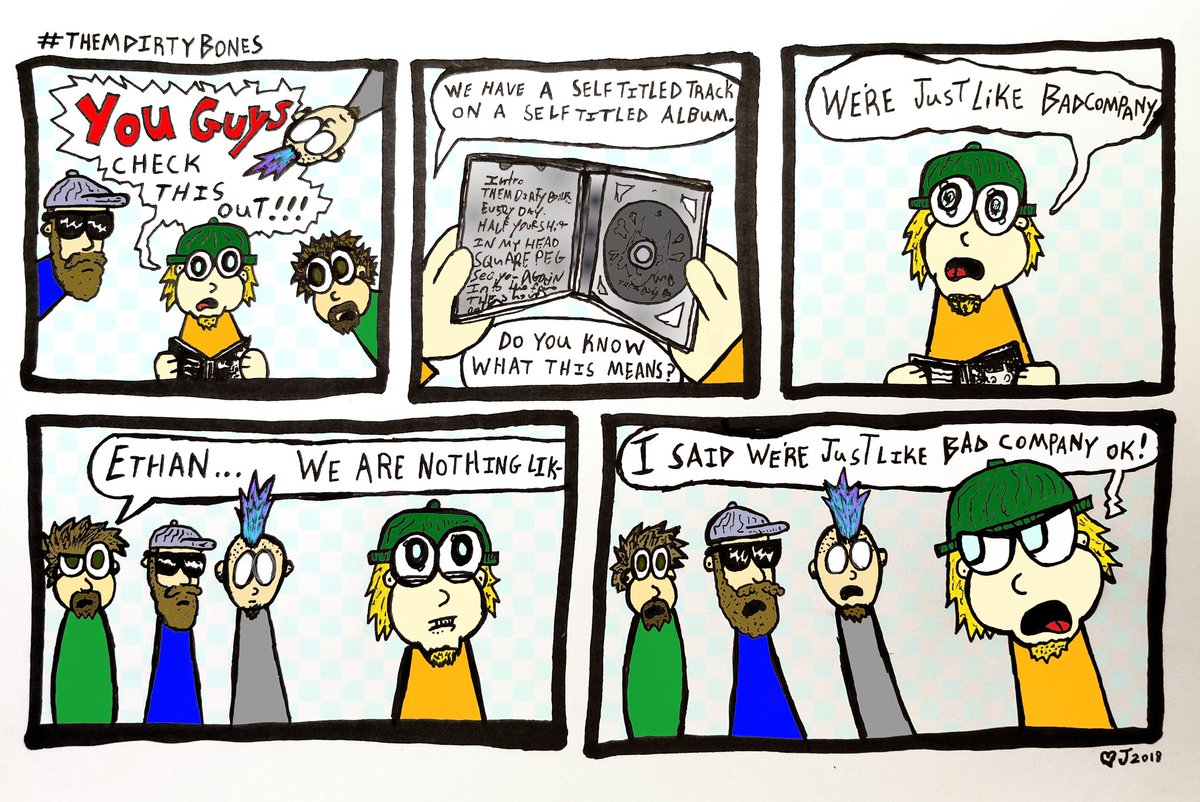 #THEMDIRTYBONES
YOU GUYS
CHECK
THIS
OUT!!!
WE HAVE A SELFTITLED TRACK
ON A SELFTITLED ALBUM.
Intro
THEM DIRTY BONES
EVERY DAY.
HALF YOUR SHIT
IN MY HEAD
SQUARE PEG
See you AGAIN
Into the fire
DO YOU KNOW
WHAT THIS MEANS?
WE'RE JUST LIKE BADCOMPANY
ETHAN... WE ARE NOTHING LIK-
I SAID WE'RE JUST LIKE BAD COMPANY OK!
J 2018